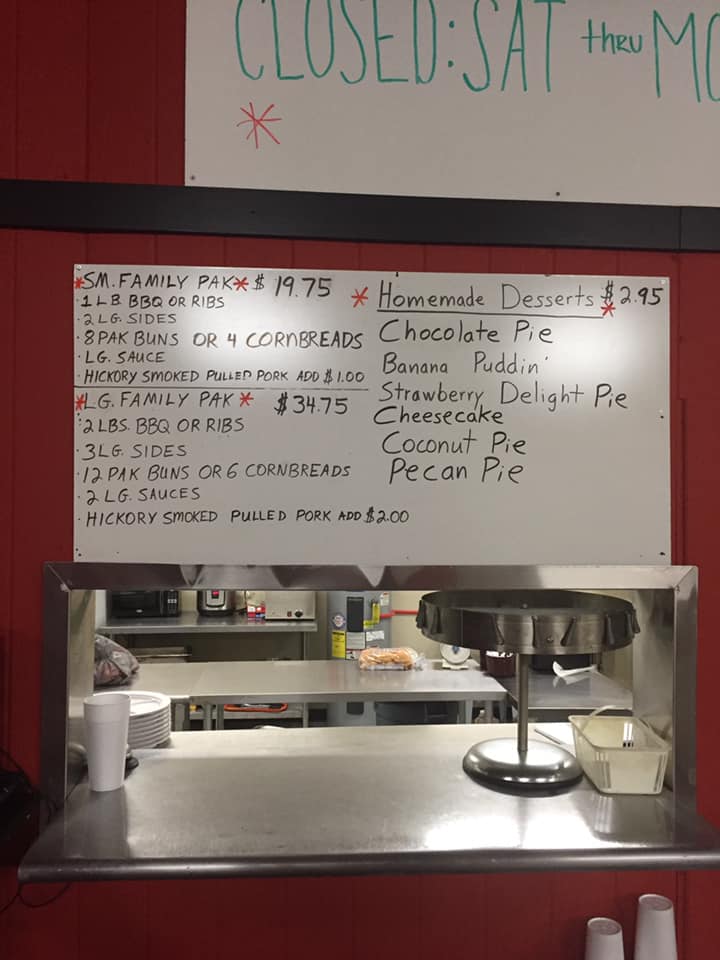 CLOSED: SAT thru MO
*
*SM. FAMILY PAK* $ 19.75
· 1 LB. BBQ OR RIBS
· 2 LG. SIDES
· 8 PAK BUNS OR 4 CORNBREADS
· LG. SAUCE
· HICKORY SMOKED PULLED PORK ADD $1.00
*LG. FAMILY PAK* $34.75
· 2 LBS. BBQ OR RIBS
· 3 LG. SIDES
· 12 PAK BUNS OR 6 CORNBREADS
· 2 LG. SAUCES
· HICKORY SMOKED PULLED PORK ADD $2.00
* Homemade Desserts $2.95
*
Chocolate Pie
Banana Puddin'
Strawberry Delight Pie
Cheesecake
Coconut Pie
Pecan Pie